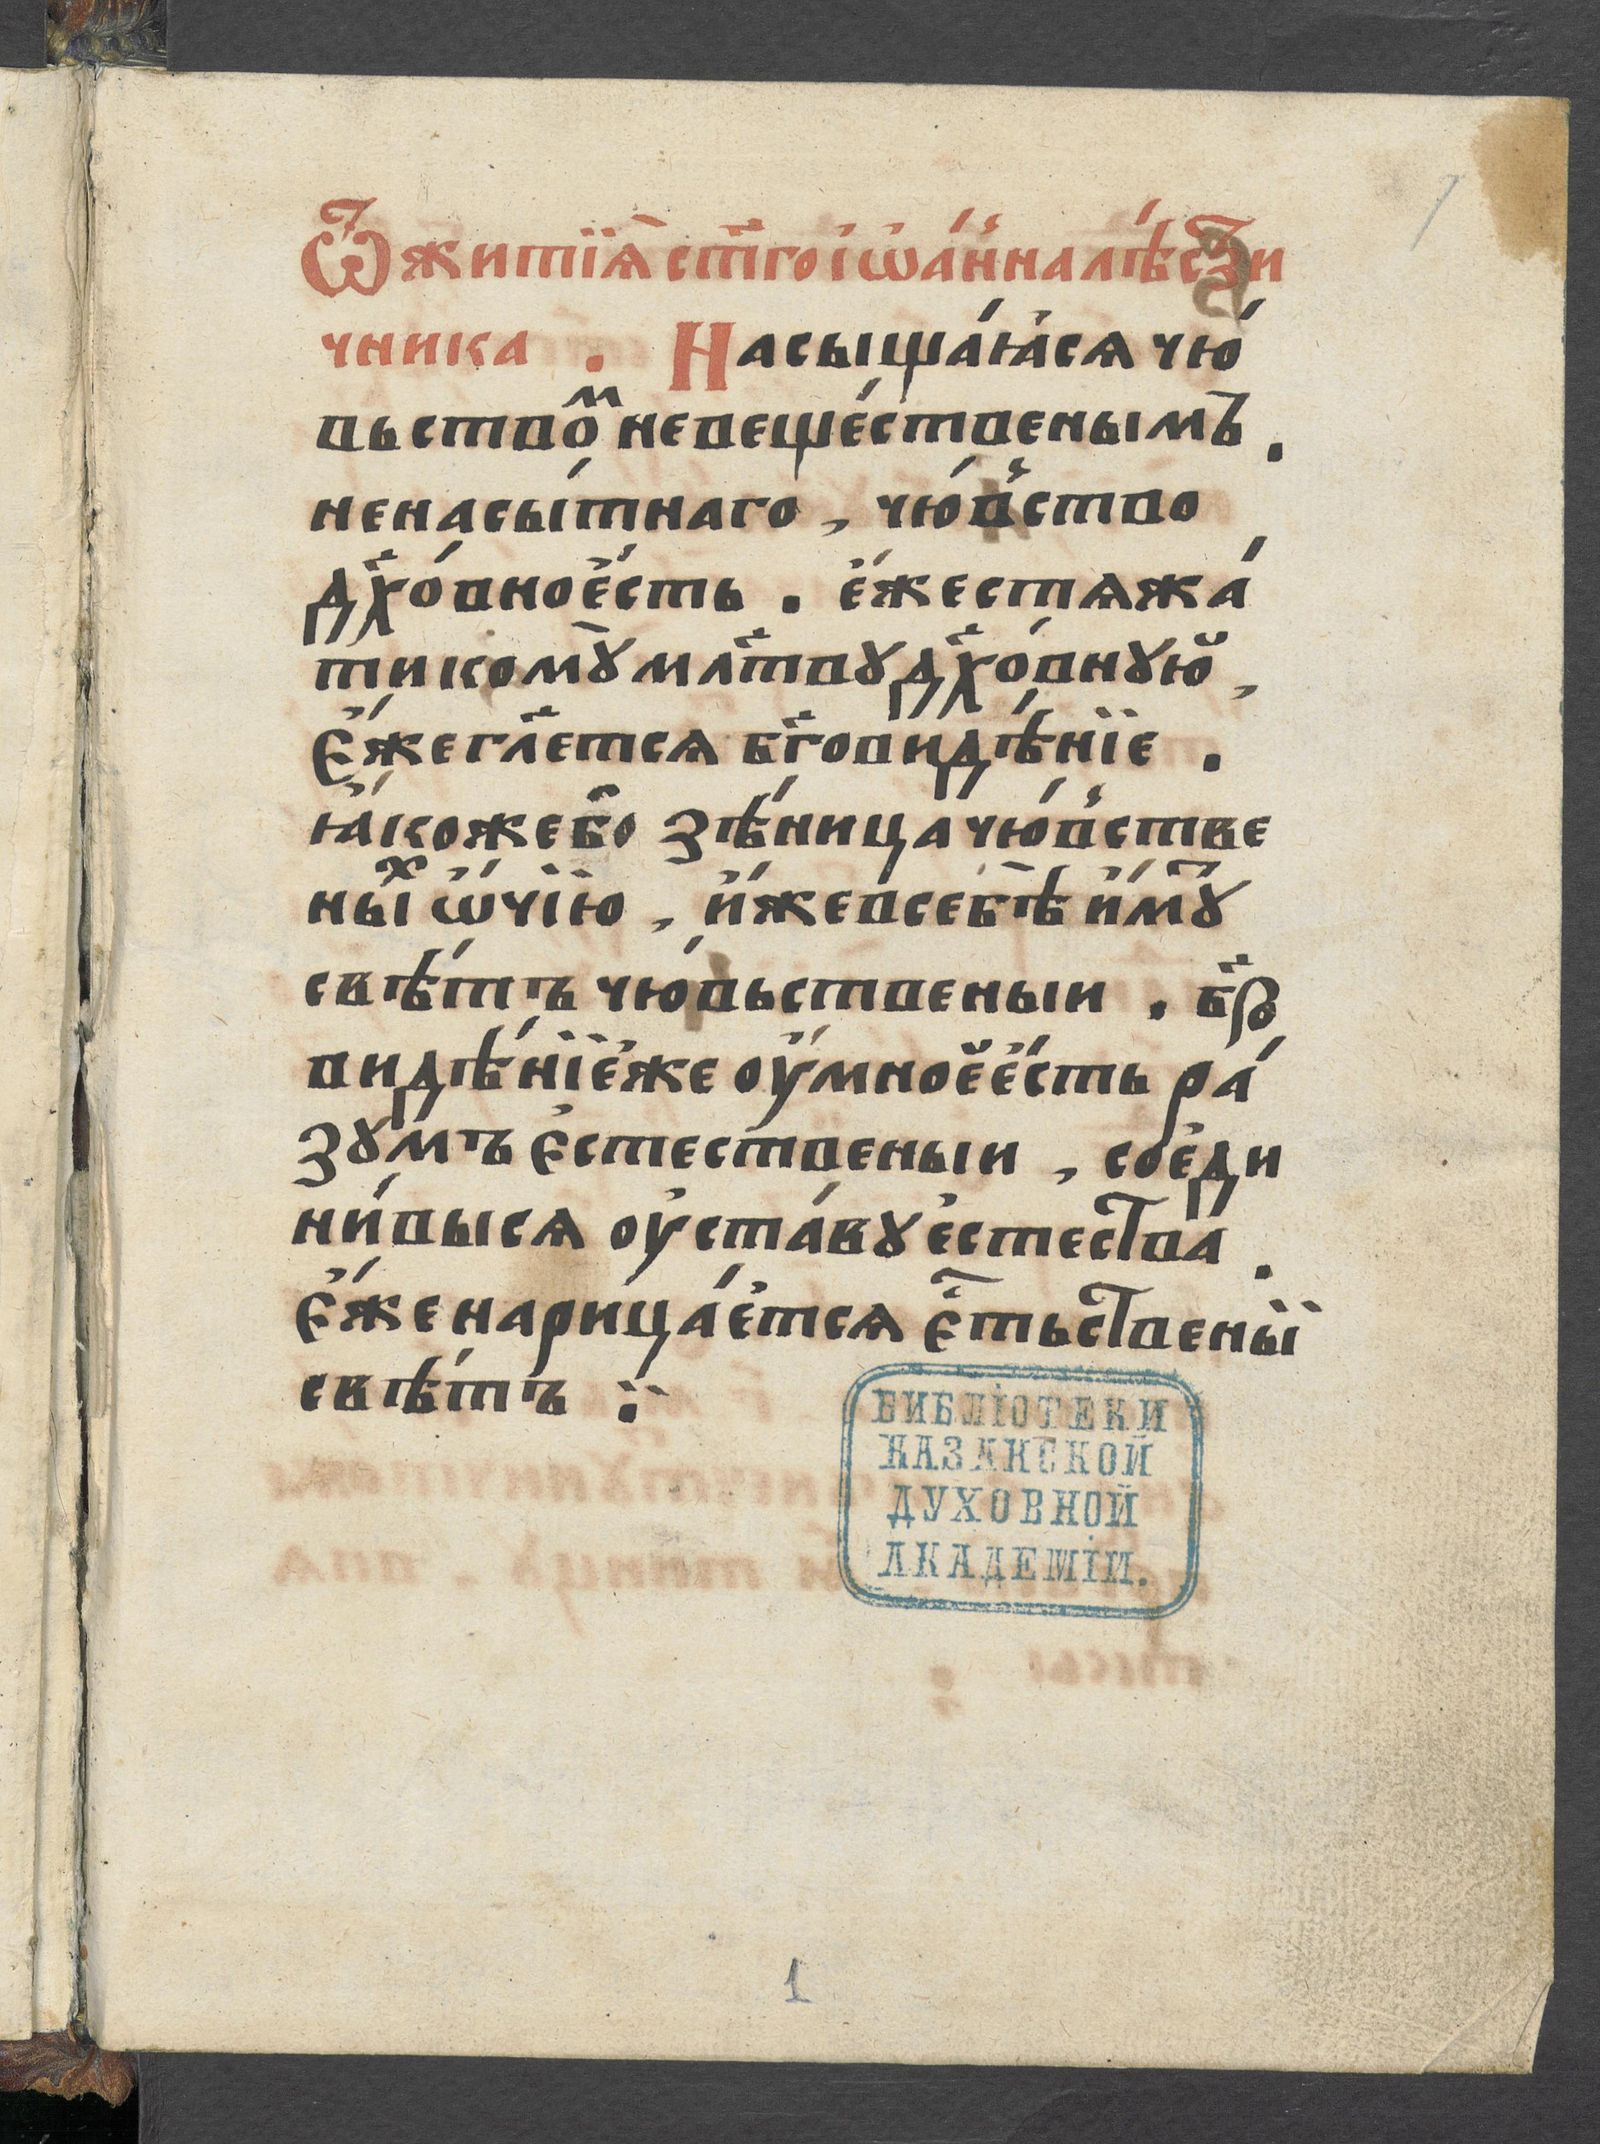 Ѿ житїѧ ст҃го іѡа́нна лѣ́стви
чника . Насыща́ѧ́йсѧ чю́
вьство́м невеще́ственымъ .
ненасы́тнаго , чю́в̾ство
дх҃о́вное́сть . е́же стѧжа́
ти комꙋ̀ мл҃твꙋ дх҃о́внꙋю ,
є́же гл҃етсѧ бг҃овидѣ́нїе .
ꙗ́коже бо̀ зѣ́ница чю́в̾стве
ны́х ѡ́чїю , и́же в себѣ̀ и́мꙋ̀
свѣ́тъ чю́вьственыи . бг҃о
видѣ́нїе́же оу́мное́ е́сть ра́
зꙋмъ є҆стественыи , сое҆ди
ни́выся оу҆ста́вꙋ е҆стества̀ .
є́же нарица́е҆тсѧ є҆ст҃ьствены́ї
свѣ́тъ :·
БИБЛІОТЕКИ
КАЗАНСКОЙ
ДУХОВНОЙ
АКАДЕМІИ.
1
1